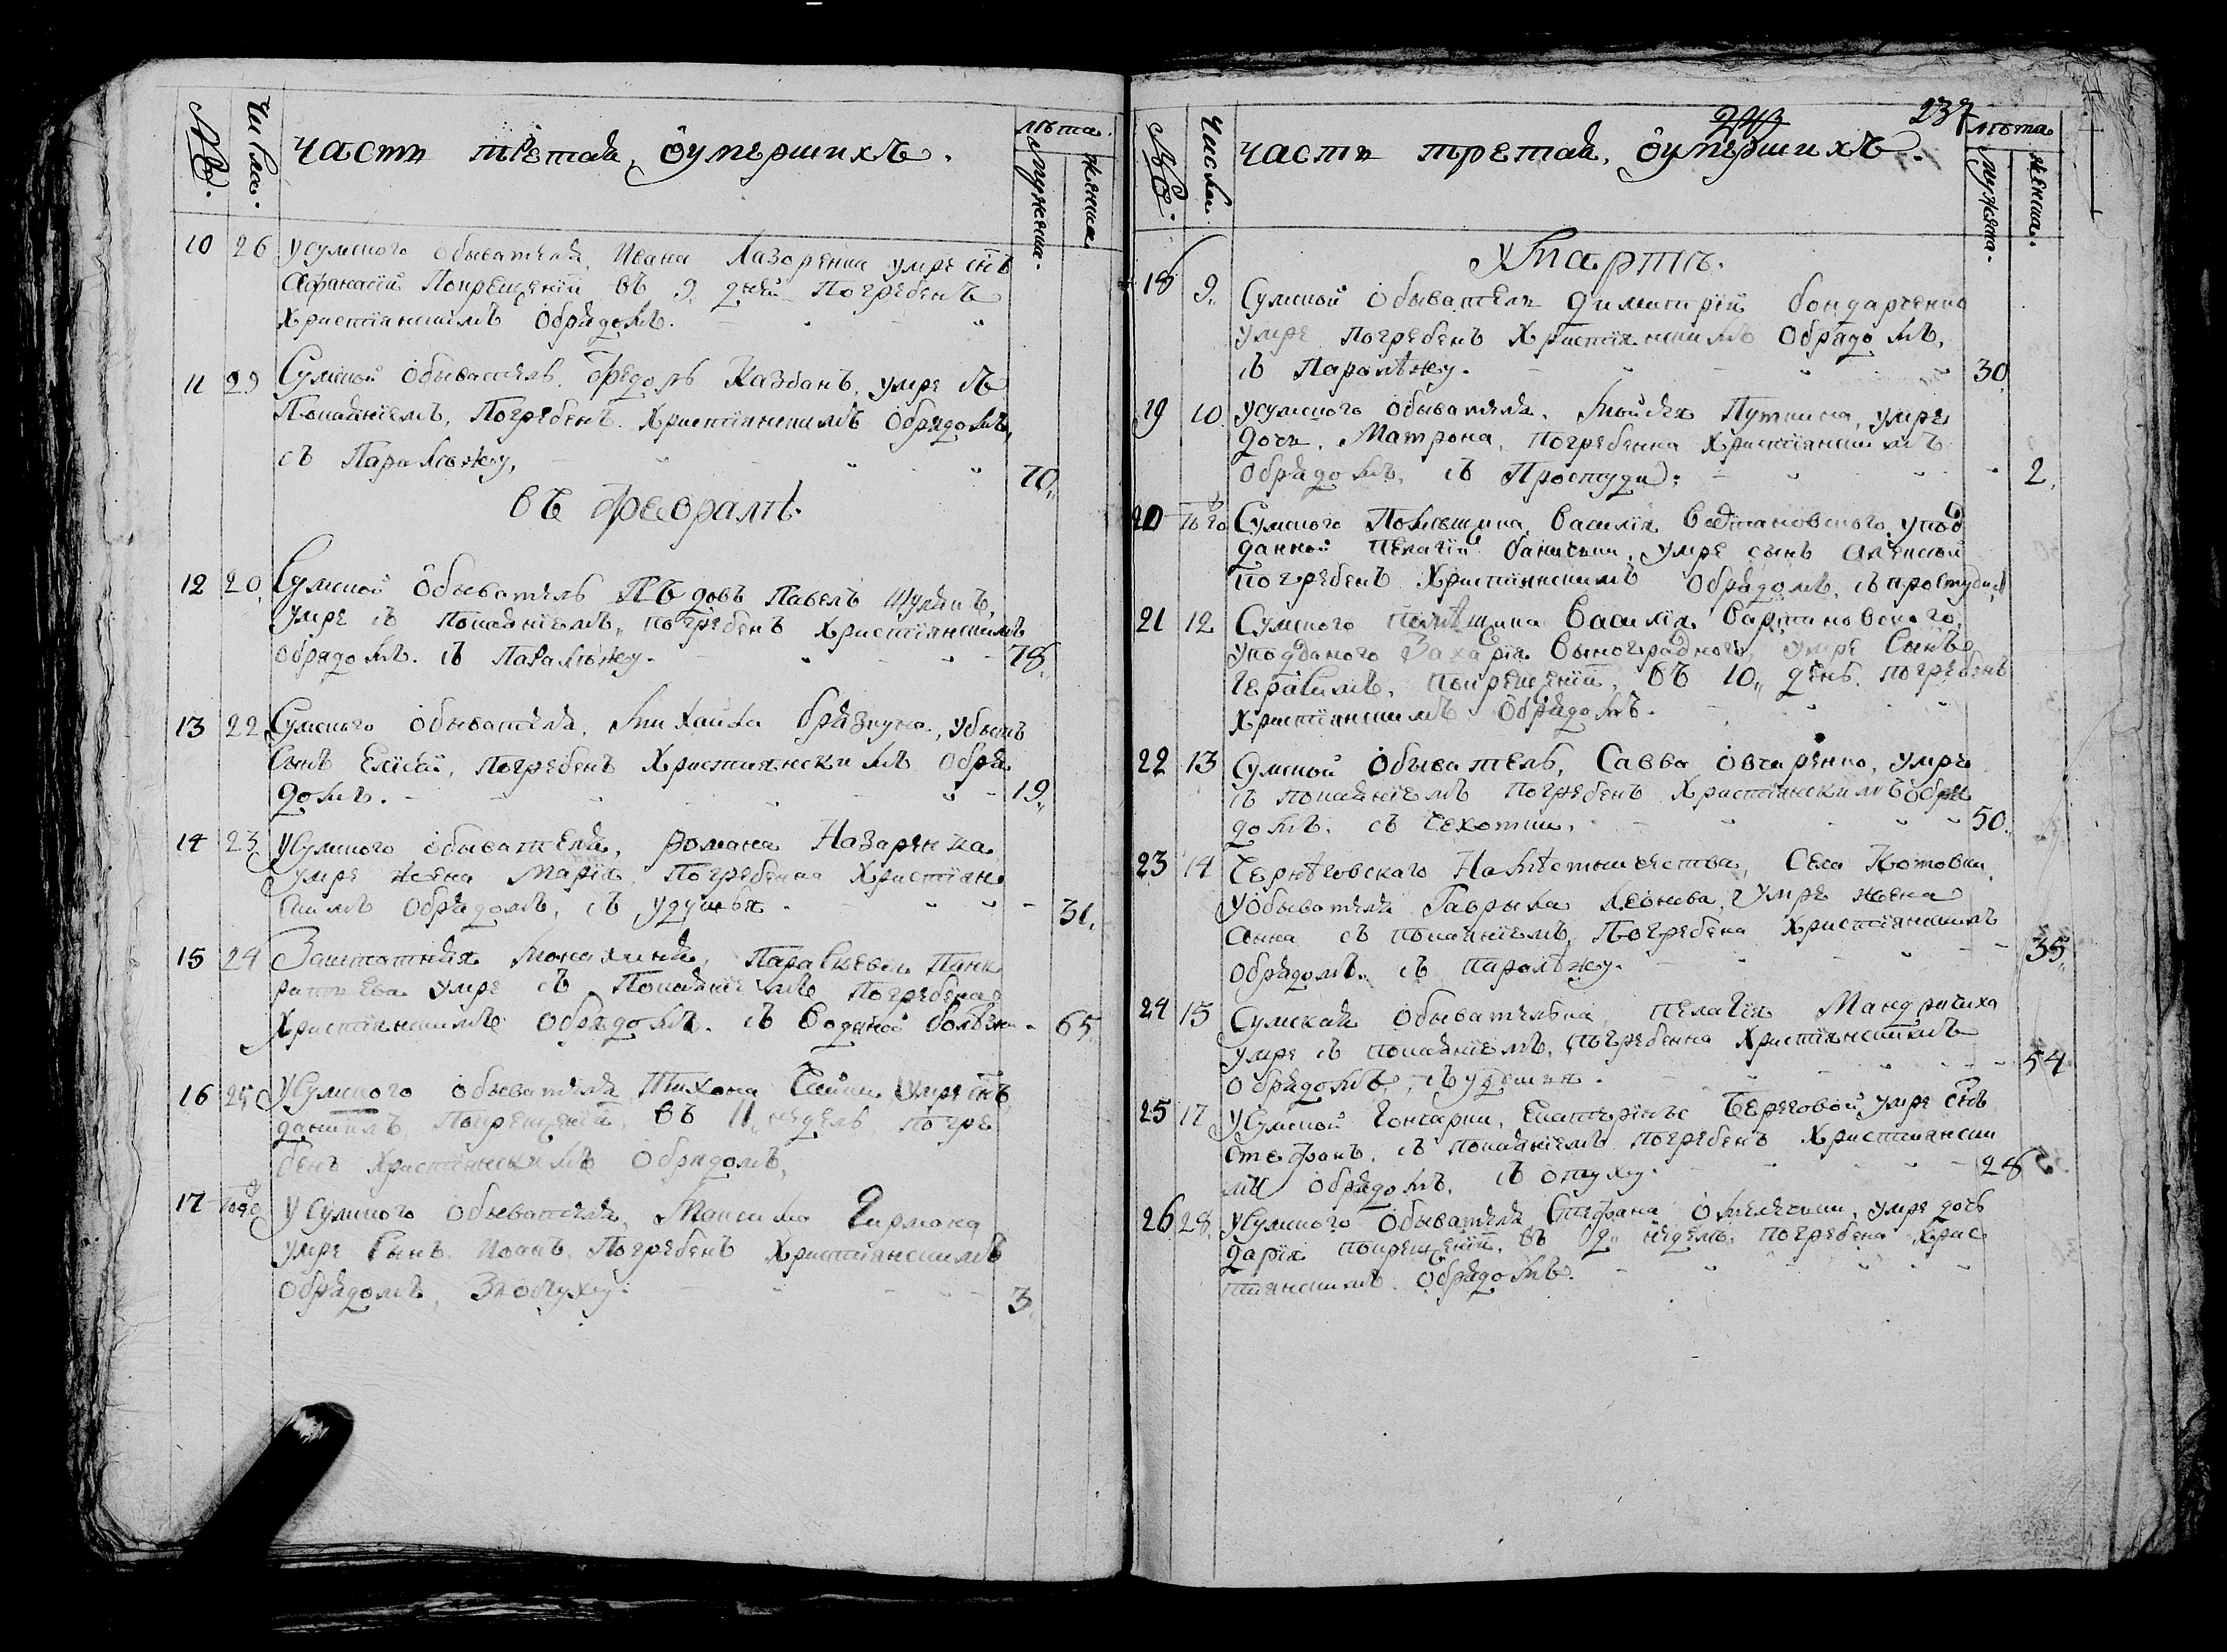 №. Числа. Часть третая, оумершихъ. лѣта. мужеска. женска.
10 26 У сумского обывателя, Ивана Лазоренка умре снъ
Афанасій По крещеніи въ 9, дней Погребенъ
Христіянскимъ обрядомъ.
11 29 Сумской обыватель, Федоръ Казбанъ, умре съ
Покаяніемъ, Погребенъ Христіянскимъ обрядомъ,
съ Паралѣжу, 70,,
въ Февралѣ.
12 20, Сумской обыватель Павелъ
умре съ Покаяніемъ, погребенъ Христіянскимъ
обрядомъ. съ Паралѣжу. 78,
13 22 Сумского обывателя, Михайла убытъ
Сынъ Елісѣй, Погребенъ Християнскимъ обря
домъ. 19,,
14 23 У Сумского обывателя, Романа Назаренка
умре жена Марія, Погребенна Христіян
скимъ обрядомъ, съ удушья. 31,
15 24 Заштатная Монахиня, Параскевія Панк
ратьева умре съ Покаяніемъ Погребена
Христіянскимъ обрядомъ. съ Водяной болѣзни 65,
16 25 У Сумского обывателя Тихона умре снъ
даниилъ, По крещеніи, въ 11,, недель Погре
бенъ Християнскимъ обрядомъ,
17 тогѡ У Сумского обывателя, Максима Гирмана
умре Сынъ Иоанъ, Погребенъ Християнскимъ
обрядомъ, 3,
237
№. Числа. Часть третая, оумершихъ. лѣта. мужеска. женска.
У Мартѣ.
18 9, Сумской обыватель Димитрій бондаренко
умре погребенъ Христіянскимъ обрядомъ,
съ Паралѣжу. 30
19 10 У сумского обывателя, Мойсея Путника, умре
Дочь, Матрона, Погребенна Христіянскимъ
обрядомъ, съ Простуди: 2,
20 тогѡ Сумского Помѣщика, Василія упод
данной Пелагіи умре сынъ Алексѣй
погребенъ Християнскимъ обрядомъ, съ простуди,
21 12 Сумского помѣщика Василія
у подданого Захарія Виноградного, умре Сынъ
Герасимъ, по крещеніи, въ 10,, день. погребенъ
Христіянскимъ обрядомъ.
22 13 Сумской обыватель, Савва Овчаренко, умре
съ покаяніемъ погребенъ Христіянскимъ обря
домъ, съ Чехотки, 50.
23 14 Чернѣговскаго Намѣстничества, Села Котовки,
у обывателя Гаврыла Леонова, умре жена
Анна съ покаяніемъ, Погребена Христіянскимъ
обрядомъ. съ паралѣжу. 35,
24 15 Сумская обывателька Пелагія Мандричиха
умре съ покаяніемъ, Погребенна Христіянскимъ
обрядомъ, съ удушия. 54
25 17 У Сумской Гончарки, Екатерины Береговой умре снъ
Стефанъ, съ покаяніемъ погребенъ Християнски
мъ обрядомъ, съ опуху. 28
26 28, У Сумского обывателя Стефана умре дочь
Дарія по крещеніи, въ недель, погребена Хрис
тиянскимъ обрядомъ.